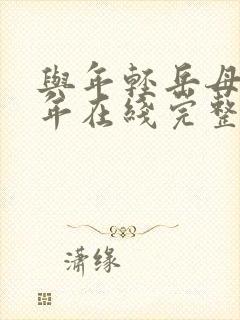 與年輕岳母
年在线完整
潇缘